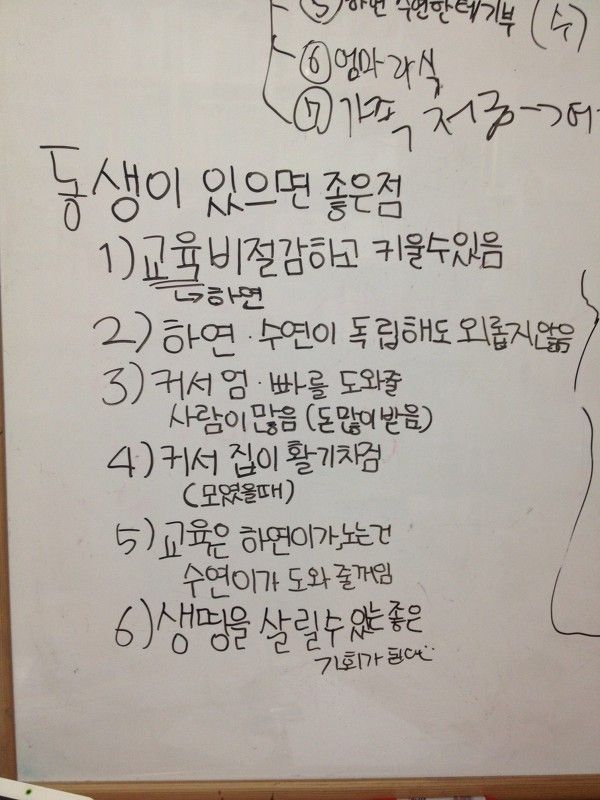 ⑤ 하연 수연한테 기부 (수)
⑥ 엄마 과식
⑦ 가족, 저금→
동생이 있으면 좋은점
1) 교육비절감하고 키울수있음
↳하연
2) 하연·수연이 독립해도 외롭지않음
3) 커서 엄·빠를 도와줄
사람이 많음 (돈많이받음)
4) 커서 집이 활기차짐
(모였을때)
5) 교육은 하연이가, 노는건
수연이가 도와줄꺼임
6) 생명을 살릴수있는 좋은
기회가 된다